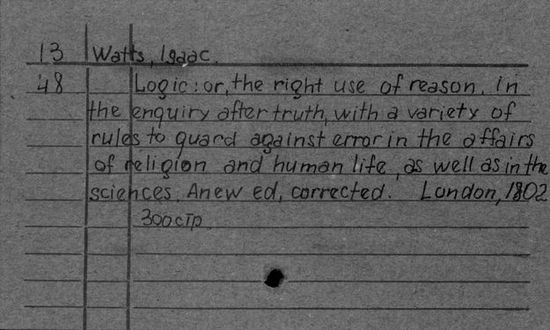 13 Watts, Isaac.
48 Logic: or, the right use of reason. In
the enquiry after truth, with a variety of
rules to guard against error in the affairs
of religion and human life, as well as in the
sciences. A new ed, corrected. London, 1802
300 стр.